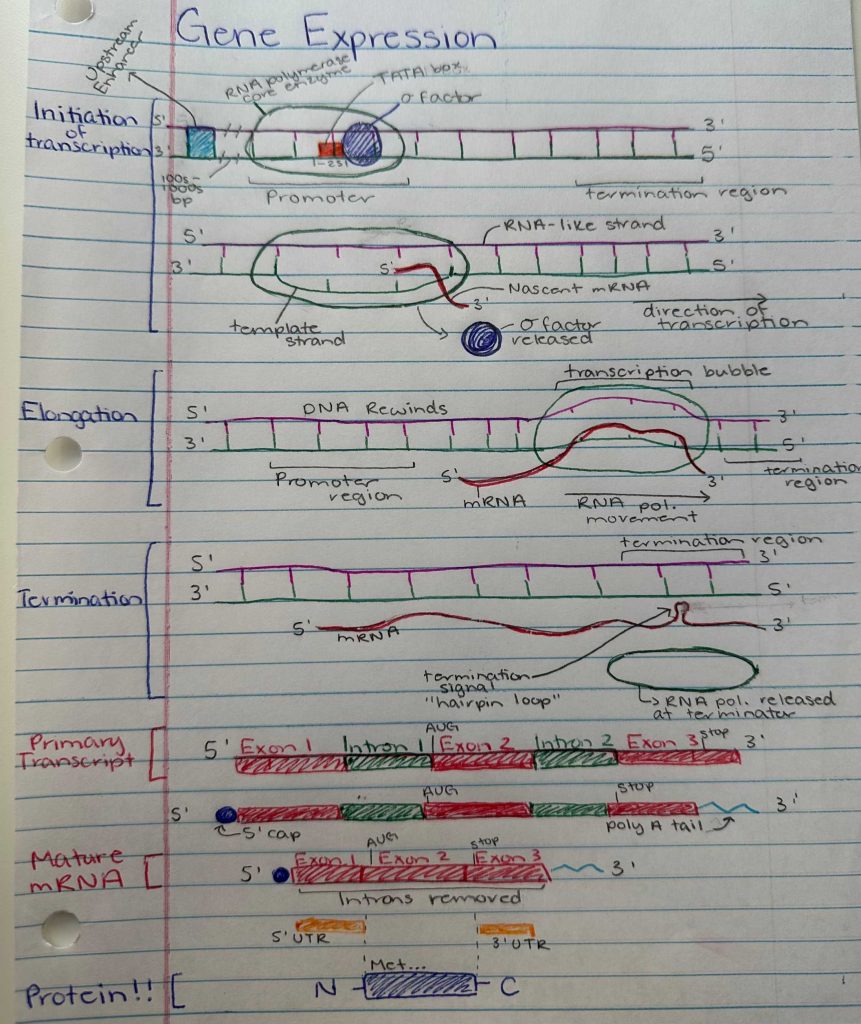 Gene Expression
Upstream
Enhancer
RNA polymerase
core enzyme
TATA box
σ factor
Initiation
of
transcription
5'
3'
3'
5'
100s-
1000s
bp
Promoter
termination region
RNA-like strand
5'
3'
3'
5'
5'
Nascent mRNA
3'
template
strand
σ factor
released
direction of
transcription
transcription bubble
Elongation
5'
DNA Rewinds
3'
3'
5'
Promoter
region
5'
mRNA
3'
RNA pol.
movement
termination
region
termination region
Termination
5'
3'
3'
5'
5'
mRNA
3'
termination
signal
"hairpin loop"
RNA pol. released
at terminator
Primary
Transcript
5'
Exon 1
Intron 1
AUG
Exon 2
Intron 2
Exon 3
stop
3'
5'
AUG
stop
3'
5' cap
poly A tail
Mature
mRNA
5'
Exon 1
AUG
Exon 2
stop
Exon 3
3'
Introns removed
5' UTR
3' UTR
Protein!!
Met...
N
C